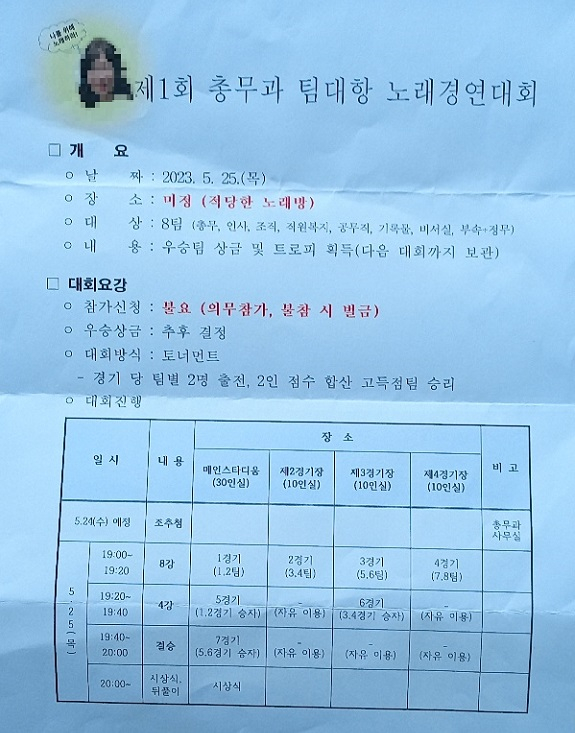 나를 위해
노래하라!
제1회 총무과 팀대항 노래경연대회
□ 개 요
○ 날 짜 : 2023. 5. 25.(목)
○ 장 소 : 미정 (적당한 노래방)
○ 대 상 : 8팀 (총무, 인사, 조직, 직원복지, 공무직, 기록물, 비서실, 부속+정무)
○ 내 용 : 우승팀 상금 및 트로피 획득(다음 대회까지 보관)
□ 대회요강
○ 참가신청 : 불요 (의무참가, 불참 시 벌금)
○ 우승상금 : 추후 결정
○ 대회방식 : 토너먼트
- 경기 당 팀별 2명 출전, 2인 점수 합산 고득점팀 승리
○ 대회진행
일 시 내 용 장 소 비 고
메인스타디움 제2경기장 제3경기장 제4경기장
(30인실) (10인실) (10인실) (10인실)
5.24(수) 예정 조추첨 총무과
사무실
5/25(목)
19:00~ 8강 1경기 2경기 3경기 4경기
19:20 (1.2팀) (3.4팀) (5.6팀) (7.8팀)
19:20~ 4강 5경기 - 6경기 -
19:40 (1.2경기 승자) (자유 이용) (3.4경기 승자) (자유 이용)
19:40~ 결승 7경기 - - -
20:00 (5.6경기 승자) (자유 이용) (자유 이용) (자유 이용)
20:00~ 시상식, 시상식
뒤풀이